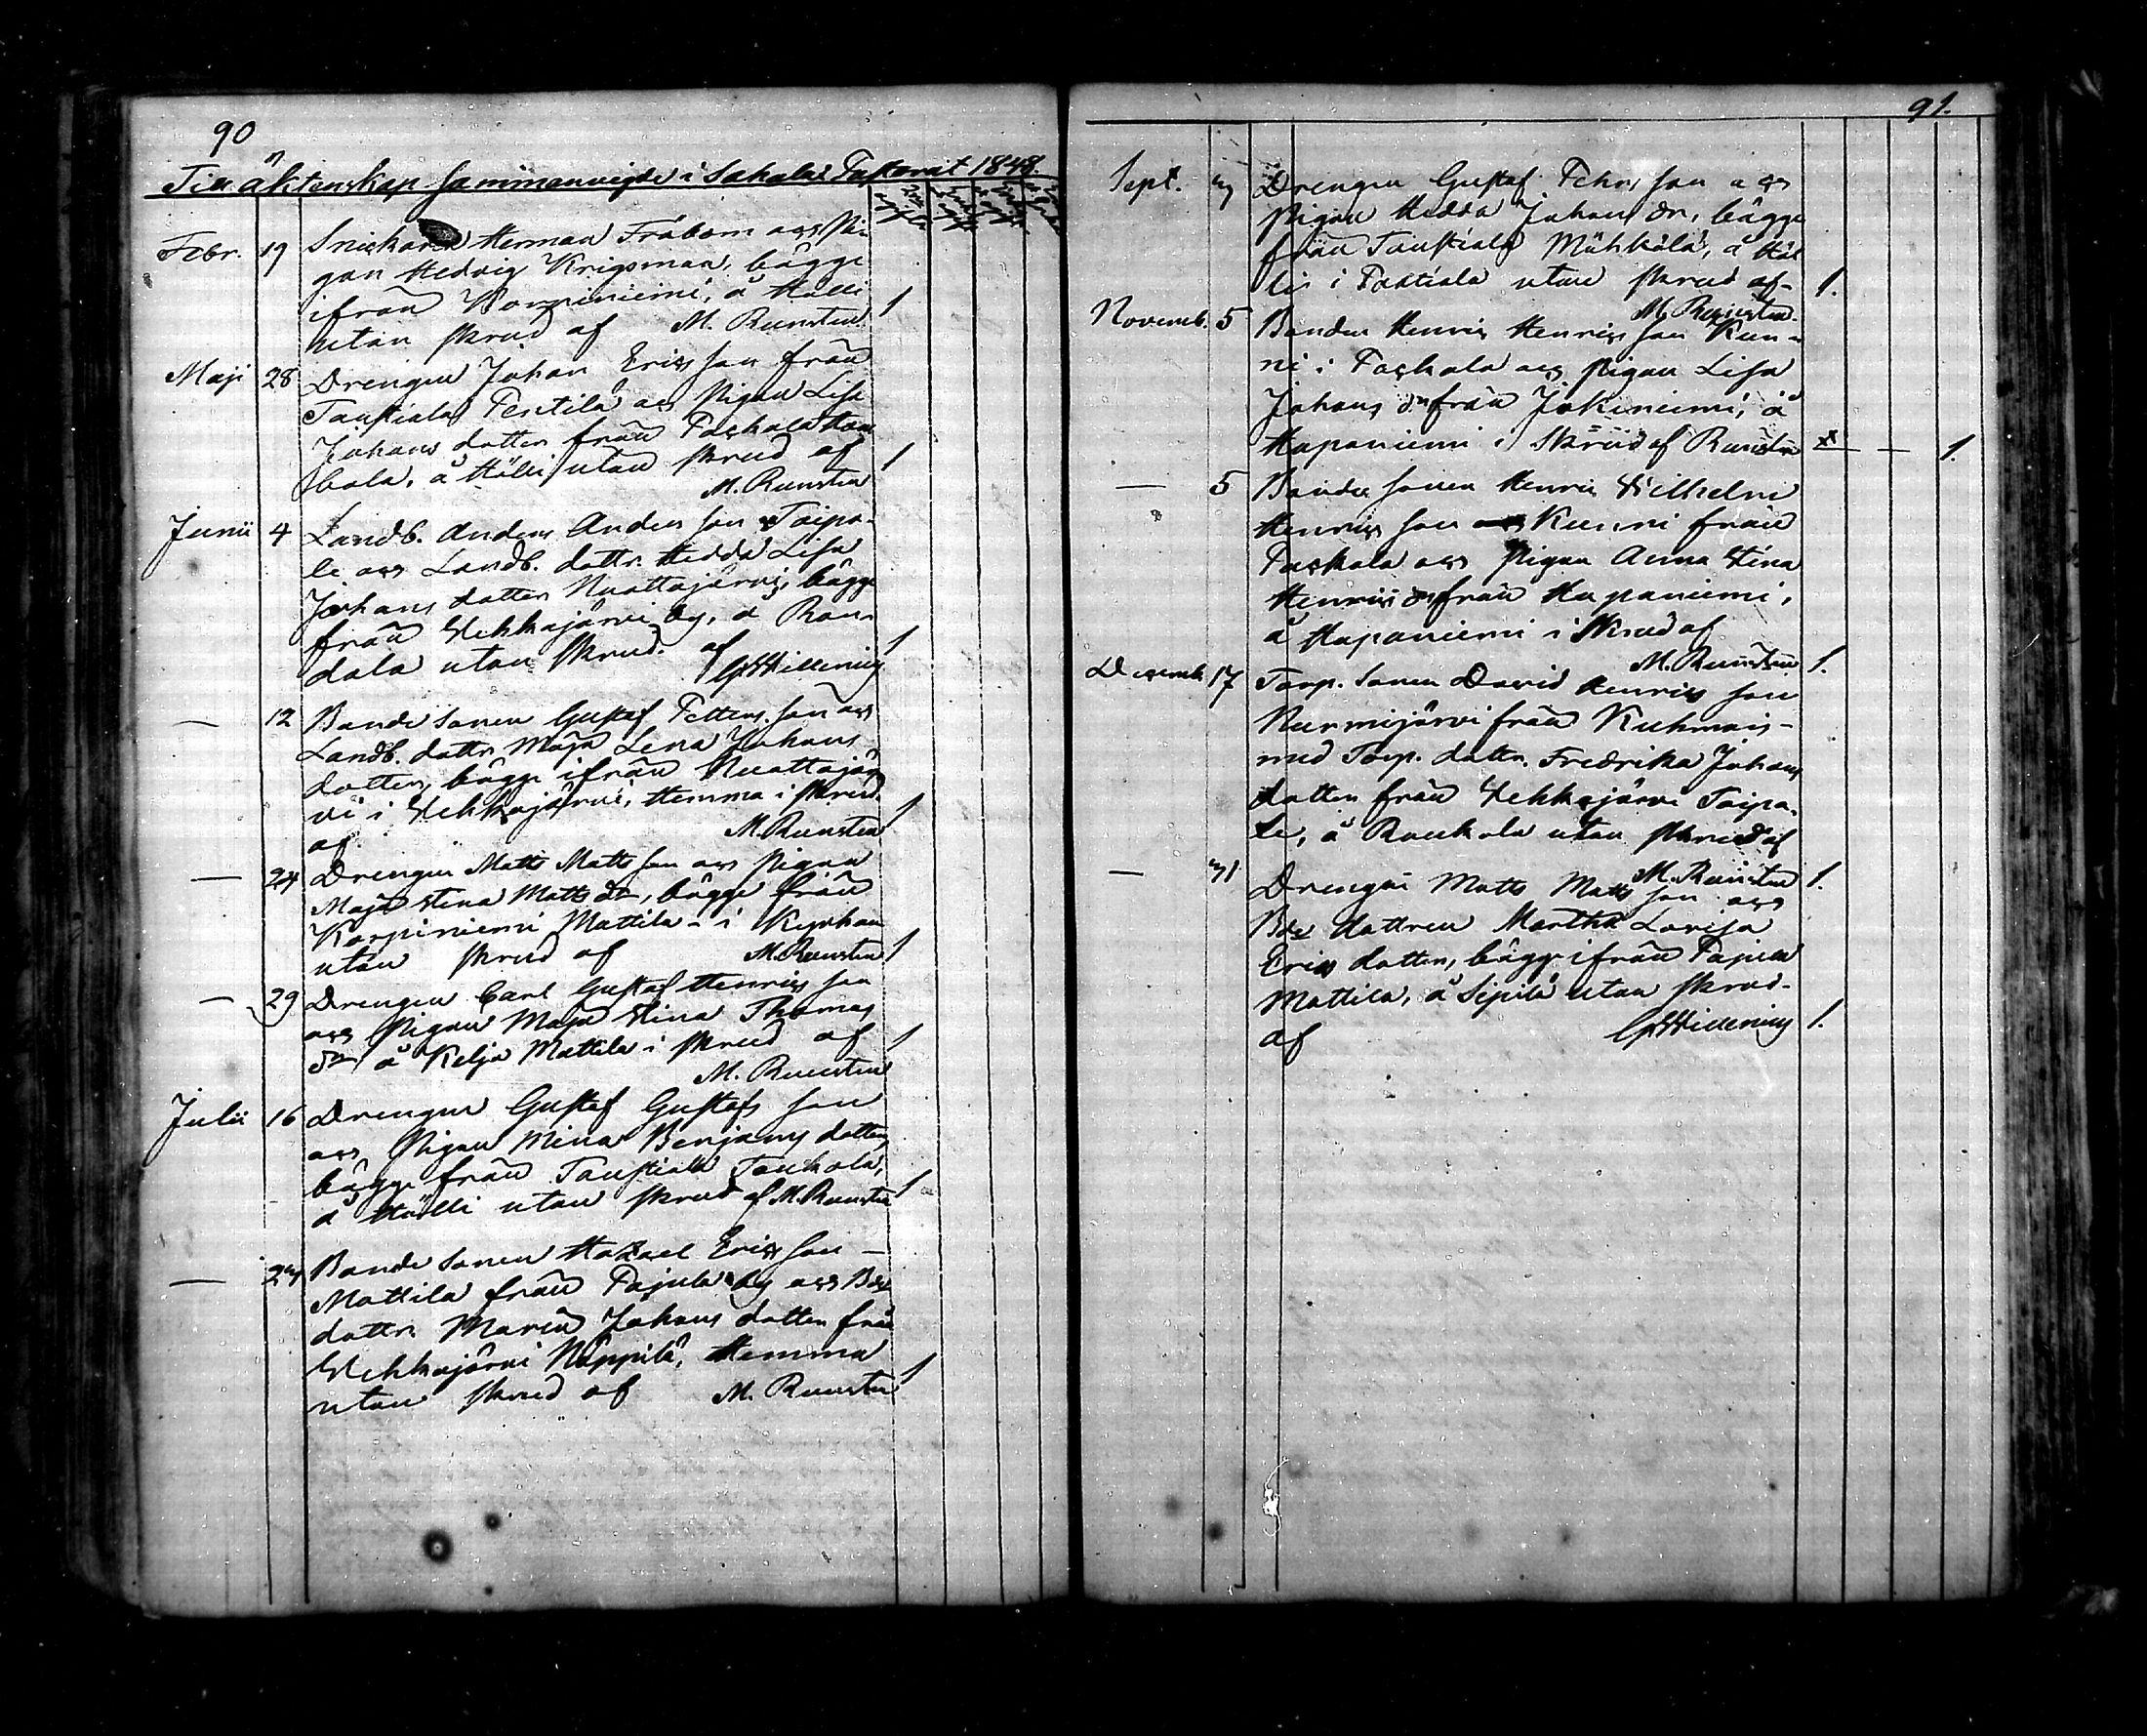 90
Till äktenskap Sammanvigde i Sahalax Pastorat 1848.
Febr. 19 Snickaren Herman Fröbom och Pi-
gan Hedvig Krigsman, bägge
ifrån Korpiniemi, å Hölli
utan skrud af M. Runsten 1
Maji 28 Drengen Johan Ericsson från
Taustiala Penttilä och Pigan Lisa
Johans dotter från Paskala
bala, å Hölli utan skrud af
M. Runsten 1
Junii 4 Landb. Anders Andersson Taipa-
le och Landb. dottr. Hedda Lisa
Johans dotter Nuottajärvi, bägge
från Vehkajärvi by, å Rau-
dala utan skrud. af
Hillenius 1
— 12 Bonde Sonen Gustaf Petters son och
Landb. dottr. Maja Lena Johans
dotter, bägge ifrån Nuottajär
vi i Vehkajärvi, Hemma i skrud.
af. M. Runsten 1
— 24 Drengen Matts Matts son och Pigan
Maja Stina Matts dr, bägge från
Korpiniemi Mattila - i Kyrkan
utan skrud af M. Runsten 1
— 29 Drengen Carl Gustaf Henrics son
och Pigan Maja Stina Thomas
dr å Kelja Mattila i skrud af
M. Runsten 1
Julii 16 Drengen Gustaf Gustafs son
och Pigan Mina Benjams dotter
bägge från Taustiala Toukola,
å Hölli utan skrud af M. Runsten 1
— 23 Bonde Sonen Hazael Erics son —
Mattila från Pajula by och Bde
dottr. Maria Johans dotter från
Vehkajärvi Näppilä, Hemma
utan skrud af M. Runsten 1
91.
Sept. 3 Drengen Gustaf Fehrs son och
Pigan Hedda Johans dr, bägge
från Taustiala Mähkälä, å Höl
li i Taustiala utan skrud af - 1.
M. Runsten.
Novemb. 5 Bonden Henric Henrics son Kun-
ni i Paskala och Pigan Lisa
Johans dr från Jokiniemi, å
Haponiemi i Skrud af Runsten — — 1.
— 5 Bonde Sonen Henric Wilhelm
Henrics son Kunni från
Paskala och Pigan Anna Stina
Henrics dr från Haponiemi,
å Haponiemi i Skrud af
M. Runsten 1.
Decemb. 17 Torp. Sonen David Henrics son
Nurmijärvi från Kuhmois -
med Torp. dottr. Fredrika Johans
dotter från Vehkajärvi Taipa-
le, å Raukola utan skrud af
M. Runsten 1.
— 31 Drengen Matts Matts son och
Bde dottren Martha Lovisa
Erics dotter, bägge ifrån Pajula
Mattila, å Sipilä utan skrud.
af Hillenius 1.